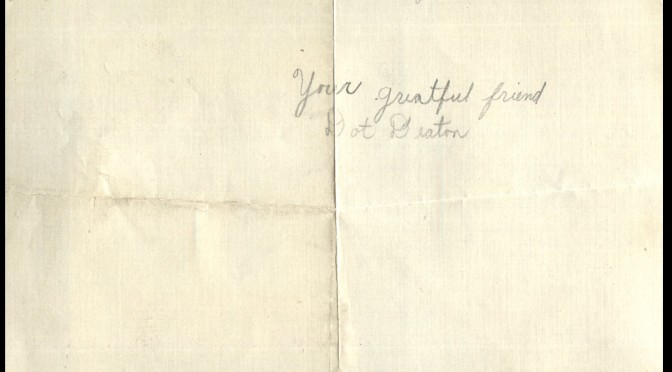 Your greatful friend
Dot Deaton